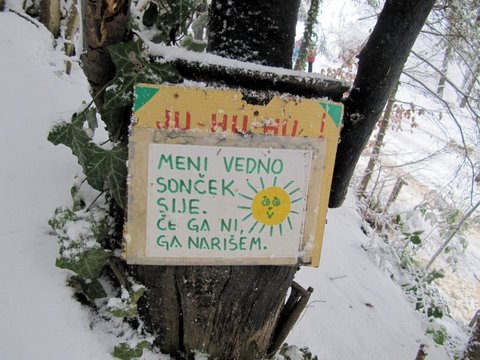 JU-HU-HU!
MENI VEDNO
SONČEK
SIJE.
ČE GA NI,
GA NARIŠEM.